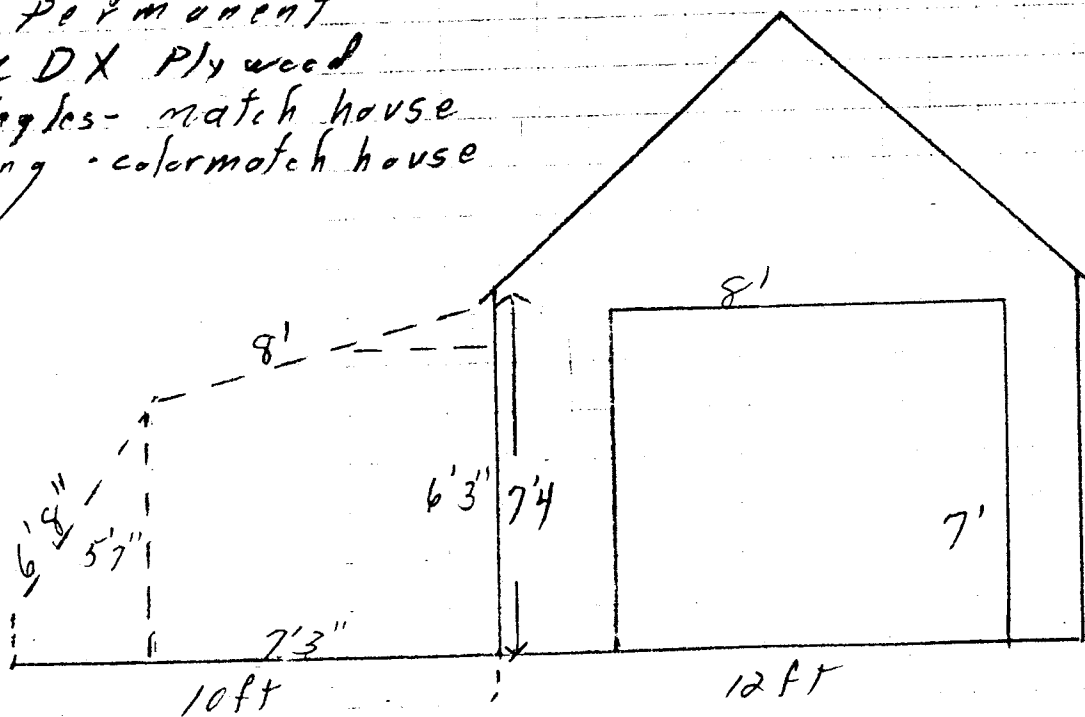 Permanent
CDX Plywood
match house
colormatch house
8'
8'
6'3" 7'4
6'8"
5'7"
7'
7'3"
10ft
12ft